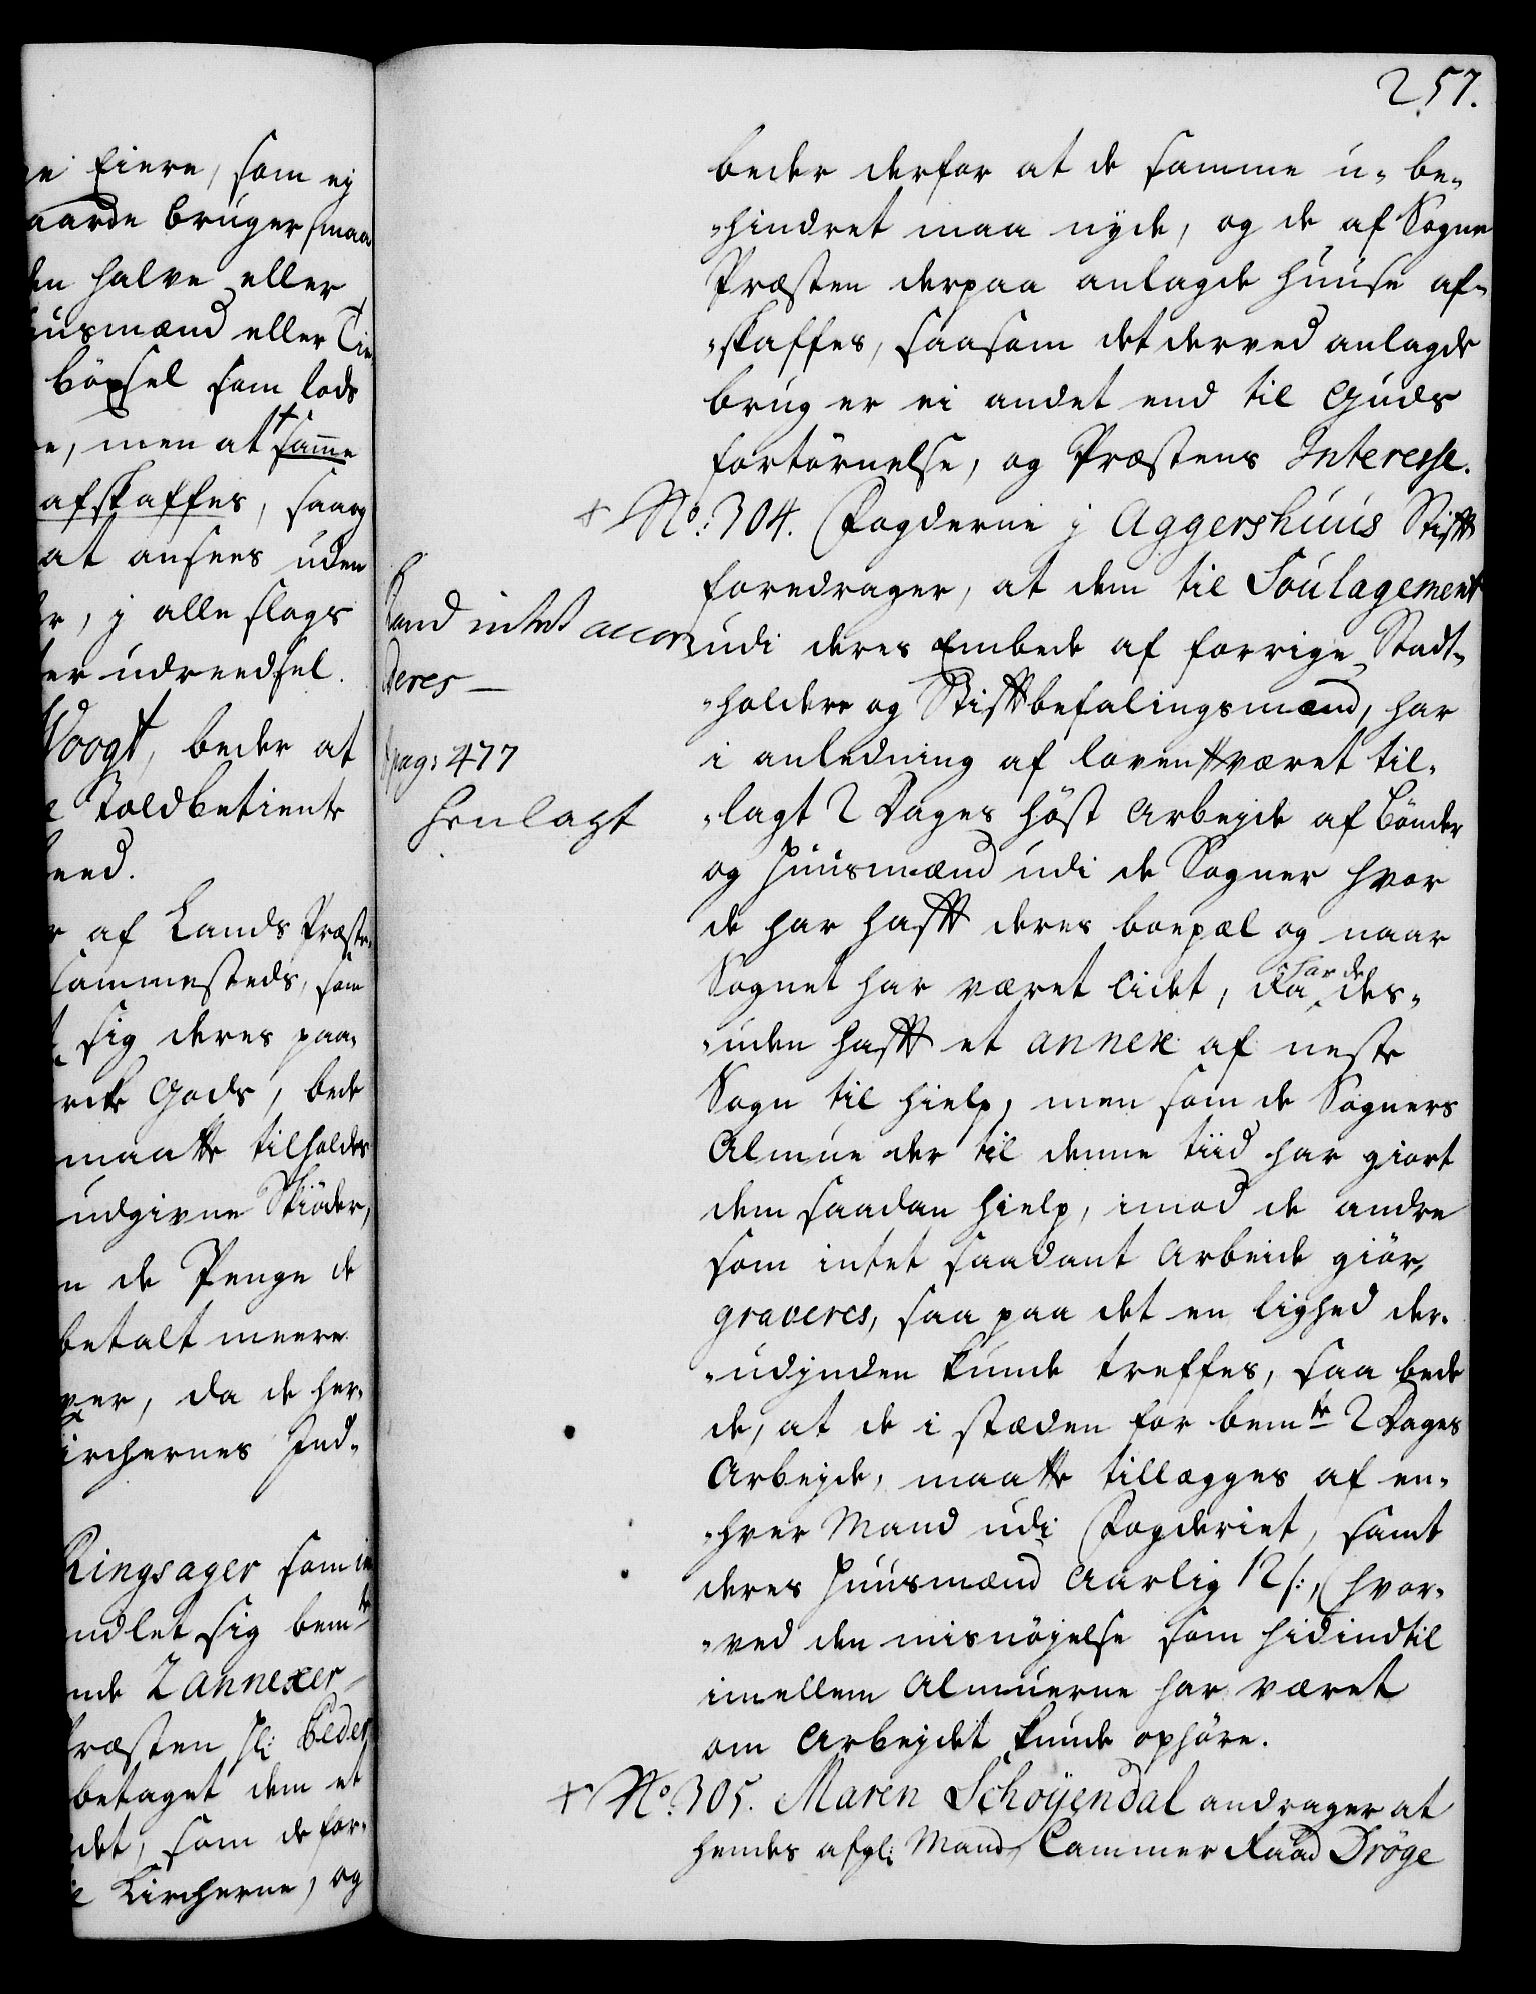 257.
e Eiere, som ej
aarde bruger maa
den halve eller
uusmænd eller Tie
böxsel som lods
e, men at samme
afskaffes, saav

at ansees uden
r, j alle slags
er udreedsel.
Voogt, beder at
e Toldbetiente
eed.
r af Lands Præste
sammesteds, som
sig deres paa-
Gods, bede
maatte tilholdes
udgivne Skiöder,
n de Penge de
betalt meere
ver, da de her-
irchernes Ind-
Ringsager som i
ndlet sig bemte
nde 2 annexer
ræsten Hr: beder
betaget dem et
det, som de for-
e Kircherne, og
beder derfor at de samme u- be-
-hindret maa nyde, og de af Sogne
Præsten derpaa anlagde huuse af-
-skaffes, saasom det derved anlagde
brug er ei andet end til Guds
fortörnelse, og Præstens Interesse.
+ No: 304. Fogderne j Aggershuus Stift
foredrager, at dem til Soulagement
udi deres Embede af forrige Stadt-
-holdere og Stiftbefalingsmænd, har
i anledning af loven været til-
-lagt 2 Dages höst Arbejde af Bönder
og Huusmænd udi de Sogner hvor
de har hafft deres boepæl og naar
Sognet har været lidet, da har de des-
-uden hafft et annex af neste
Sogn til hielp, men som de Sogners
Almue der til denne tiid har giort
dem saadan hielp, imod de andre
som intet saadant Arbeide giör,
graveres, saa paa det en lighed der-
-udjnden kunde treffes, saa bede
de, at de i stæden for bemte 2 Dages
Arbejde, maatte tillægges af en-
-hver Mand udi Fogderiet, samt
deres Huusmænd Aarlig 12 s:, hvor-
-ved den misnöjelse som hidindtil
imellem Almuerne har været
om Arbejdet kunde ophöre.
+ No: 305. Maren Schöyendal andrager at
hendes afgl: Mand Cammer Raad Dröge
kand intet accor
deres —
pag: 477
henlagt